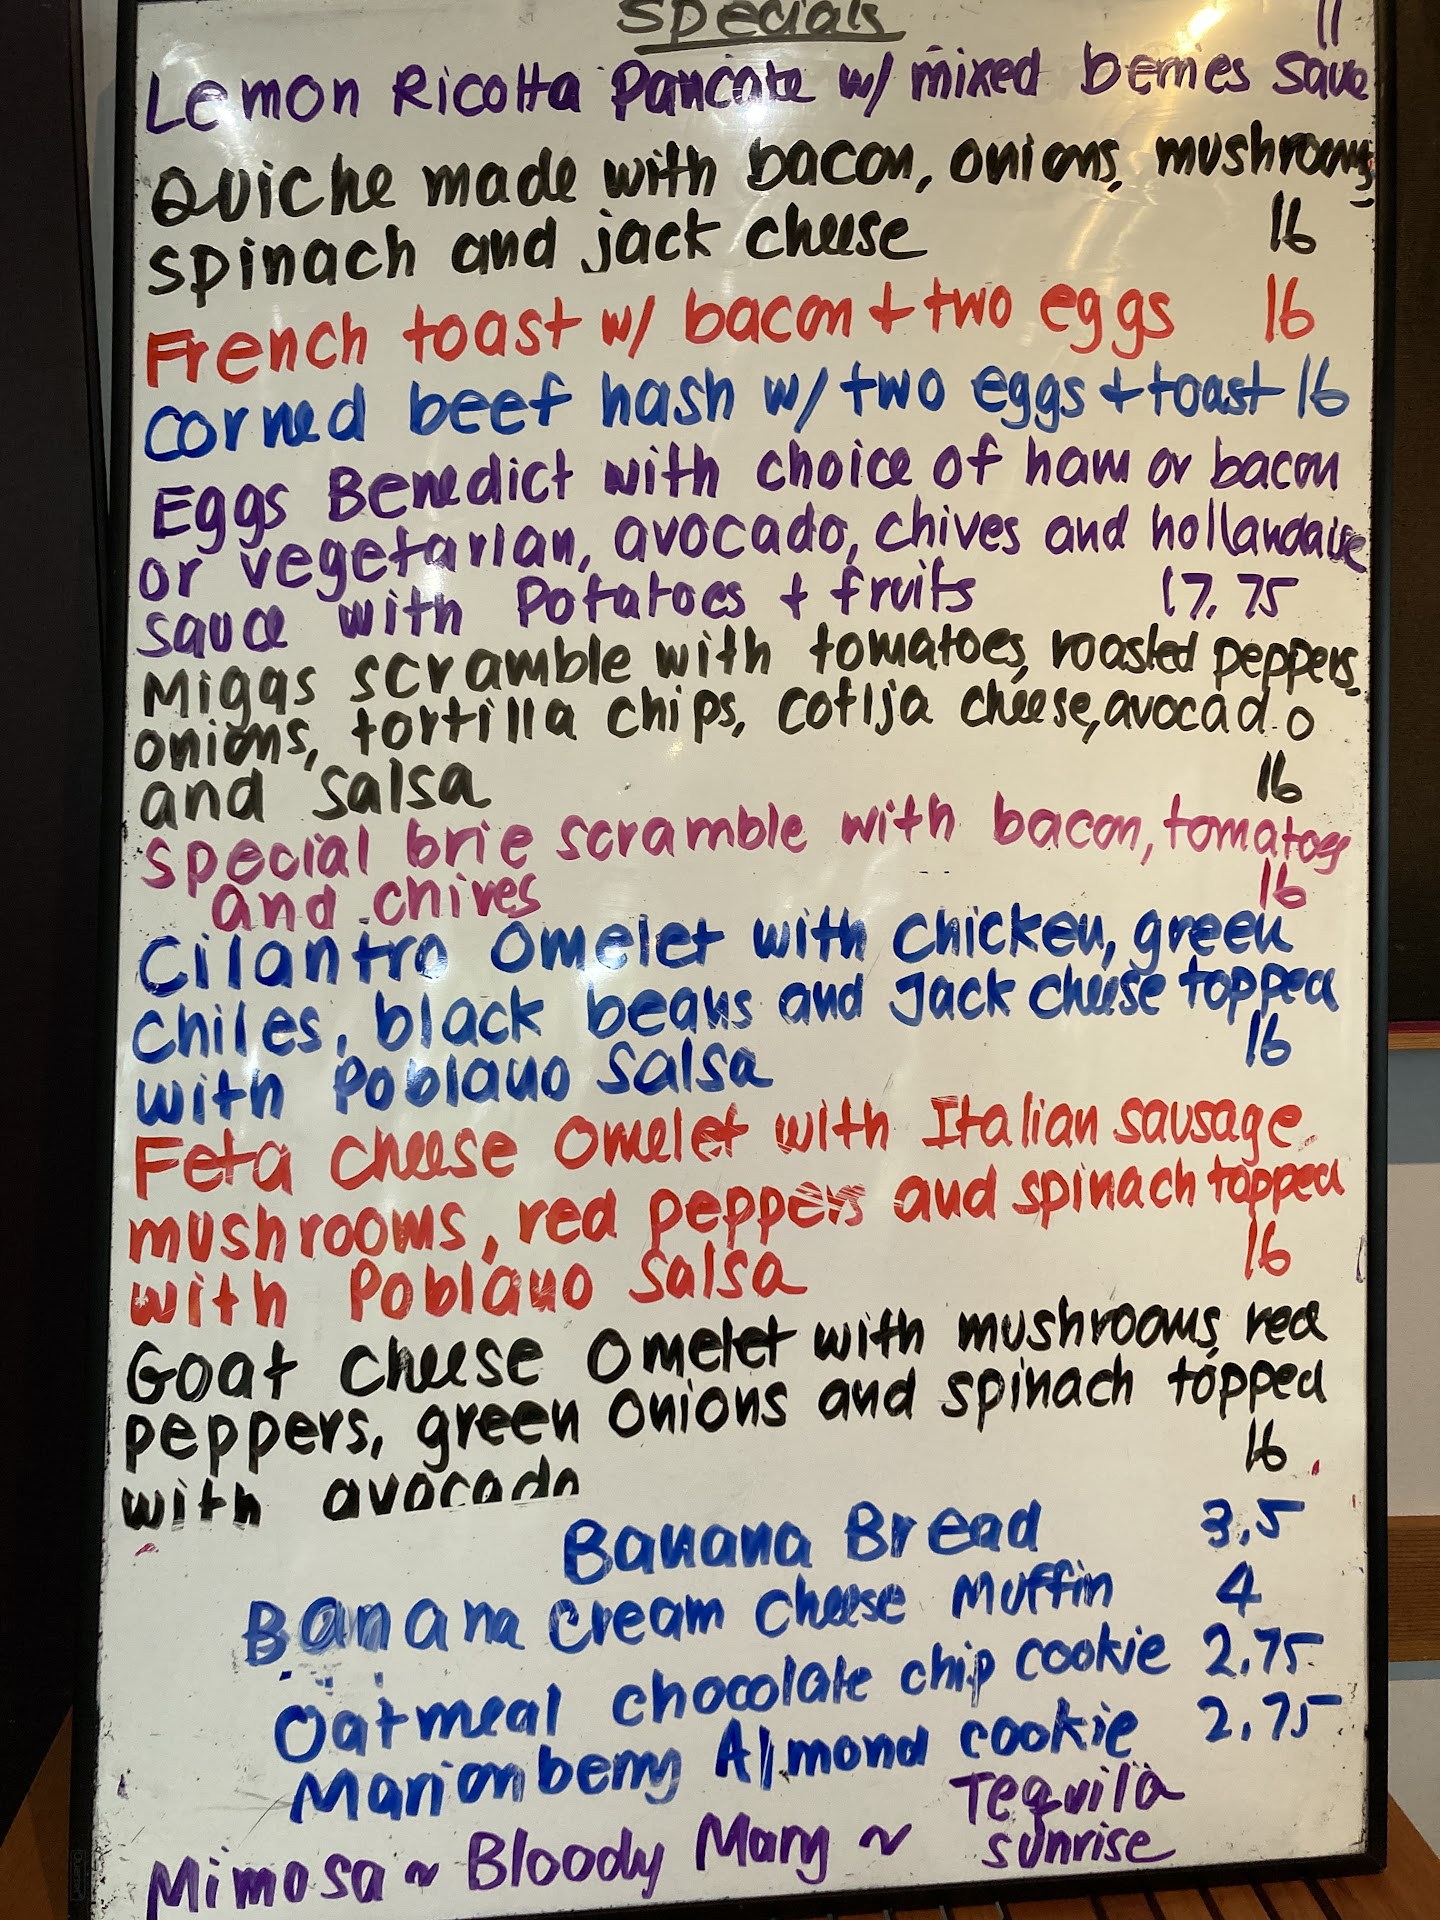 Specials
11
Lemon Ricotta Pancake w/ mixed berries sauce
Quiche made with bacon, onions, mushrooms,
spinach and jack cheese 16
French toast w/ bacon + two eggs 16
corned beef hash w/ two eggs + toast 16
Eggs Benedict with choice of ham or bacon
or vegetarian, avocado, chives and hollandaise
sauce with Potatoes + fruits 17.75
Migas scramble with tomatoes, roasted peppers,
onions, tortilla chips, cotija cheese, avocado
and salsa 16
special brie scramble with bacon, tomatoes
and chives 16
Cilantro omelet with chicken, green
chiles, black beans and Jack cheese topped
with Poblano salsa 16
Feta cheese omelet with Italian sausage
mushrooms, red peppers and spinach topped
with Poblano salsa 16
Goat cheese omelet with mushrooms, red
peppers, green onions and spinach topped
with avocado 16
Banana Bread 3.5
Banana cream cheese muffin 4
Oatmeal chocolate chip cookie 2.75
Marionberry Almond cookie 2.75
Mimosa ~ Bloody Mary ~ Tequila
sunrise